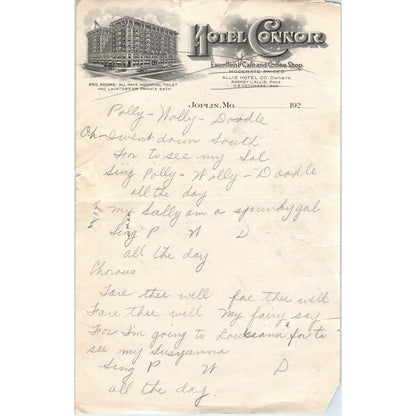 HOTEL CONNOR
Excellent Cafe and Coffee Shop
MODERATE PRICES
ALLIS HOTEL CO., Owners
BARNEY L. ALLIS, PRES.
250 ROOMS: ALL HAVE INDIVIDUAL TOILET
AND LAVATORY OR PRIVATE BATH
JOPLIN, MO. 192
Polly-Wolly-Doodle
Oh-I went down South
For to see my Sal
Sing Polly-Wolly-Doodle
all the day
my Sally am a spunky gal
Sing P W D
all the day.
Chorous
Fare thee well fare thee well
Fare thee well My fairy fay
For I'm going to Louisiana for to
see my Susyanna
Sing P W D
all the day